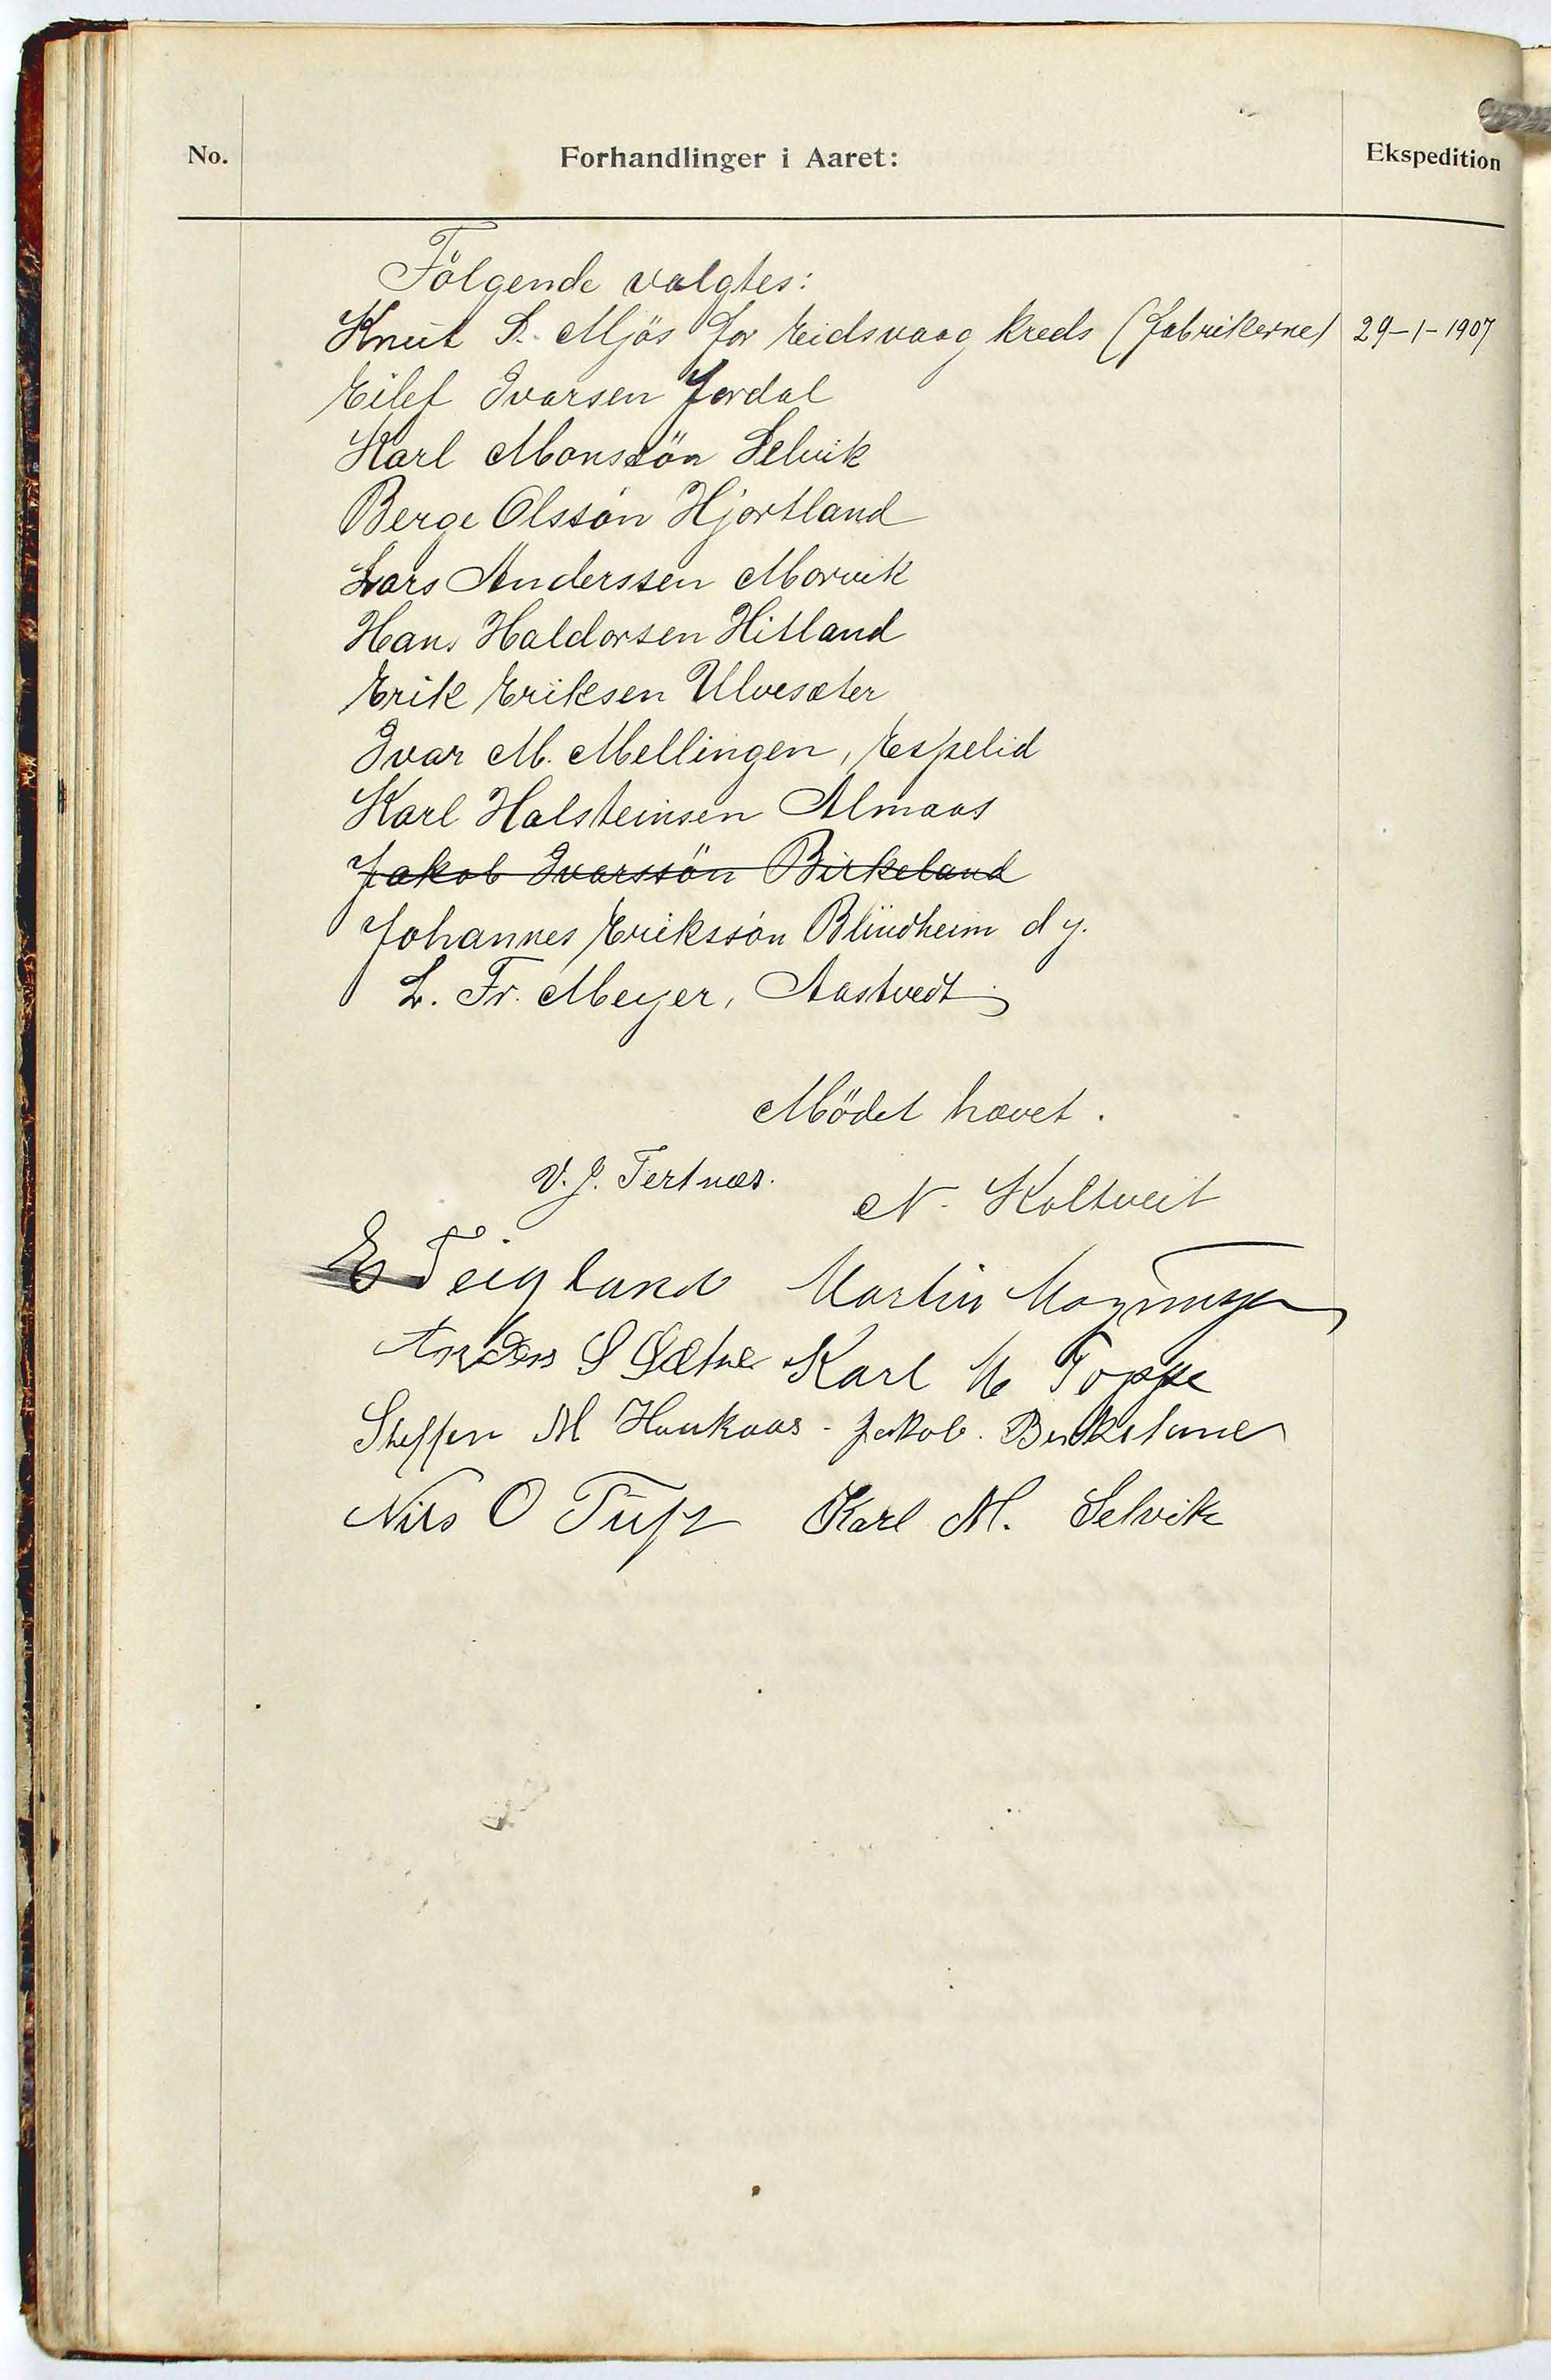 No. Forhandlinger i Aaret: Ekspedition
Fölgende valgtes:
Knut S. Mjös for Eidsvaag kreds (fabrikerne) 29-1-1907
Eilef Ivarsen Jordal
Karl Monssön Selvik
Berge Olssön Hjortland
Lars Anderssen Morvik
Hans Haldorsen Hitland
Erik Eriksen Ulvesæter
Ivar M. Mellingen, Espelid
Karl Halsteinsen Almaas
Jakob Ivarssön Birkeland
Johannes Erikssön Blindheim d y.
L. Fr. Meyer, Aastvedt
Mödet hævet.
V. J. Tertnæs. N. Koltveit
E Teigland Martin Magnusen
Anders S Sætre Karl M Toppe
Steffen M Haukaas - Jakob. Birkeland
Nils O Tuft Karl M. Selvik